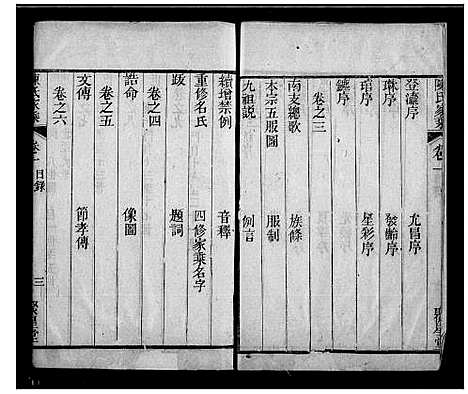 陳氏家乘 卷一
登瀛序 允昌序
琳序 發齡序
琯序 星彩序
鏈序
卷之三
南支總歌 族條
本宗五服圖 服制
九祖説 例言
續增禁例 音釋
重修名氏 四修家乘名字
跋 題詞
卷之四
誥命 像圖
卷之五
文傳 節孝傳
卷之六
卷一 目錄 三